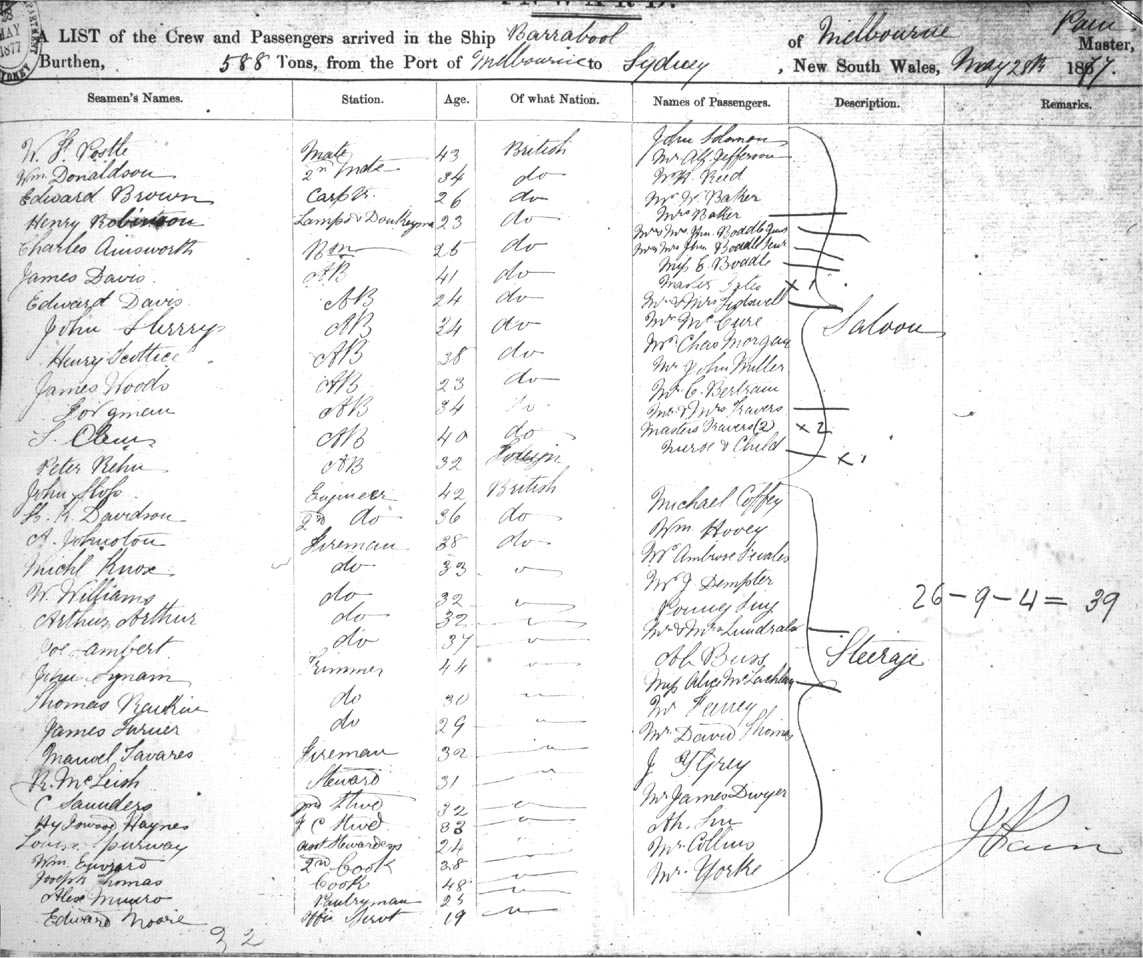 INWARD.
MAY
1877
A LIST of the Crew and Passengers arrived in the Ship Barrabool of Melbourne Pain Master,
Burthen, 588 Tons, from the Port of Melbourne to Sydney, New South Wales, May 28th 1877.
Seamen's Names. Station. Age. Of what Nation. Names of Passengers. Description. Remarks.
Postle Mate 43 British John Solomon
Wm Donaldson 2nd Mate 34 do Mr Alf Jefferson
Edward Brown Carpr. 26 do W H Reed
Henry Robinson Lamps & Donkeyman 23 do Mr W Baker
Mrs Baker
Charles Ainsworth 25 do Mr & Mrs Jhn. Boddle Juns
Mr & Mrs Jhn Boddle Senr
James Davis AB 41 do Miss E Boddle
Master x 1
Edward Davis AB 24 do Mr & Mrs
John Sherry AB 34 do Mr McCure Saloon
Henry AB 38 do Mr Chas Morgan
James Woods AB 23 do Mr John Miller
AB 34 do Mr C. Bertram
Mr & Mrs Travers
S. AB 40 do Masters Travers (2) x 2
Peter Rehn AB 32 Foreign Nurse & Child x 1
John Engineer 42 British
R. Davidson 2nd do 36 do Michael Coffey
A. Johnston Fireman 38 do Wm Hovey
Michl Knox do 33 " Mr Ambrose
W. Williams do 32 " Mr J Dempter
26 - 9 - 4 = 39
Arthur Arthur do 32 " Young
Joe Lambert do 37 " Mr & Mrs
John Lynam Trimmer 44 " Ah Buss Steerage
Thomas Rankin do 30 " Miss Alice McLachlan
James Turner do 29 " Mr
Manuel Tavares Fireman 32 " Mr David Thomas
R. McLeish Steward 31 " J Grey
C Saunders 2nd Stwd 32 " Mr James Dwyer
Hy Haynes F C Stwd 33 " Ah
Louisa Spurway Asst Stewardess 24 " Mr Collins
Wm 2nd Cook 38 " Mr Yorke
Joseph Thomas Cook 48 "
Alex Munro Pantryman 25 "
Edward Moore Offrs Servt 19 "
32
J Pain